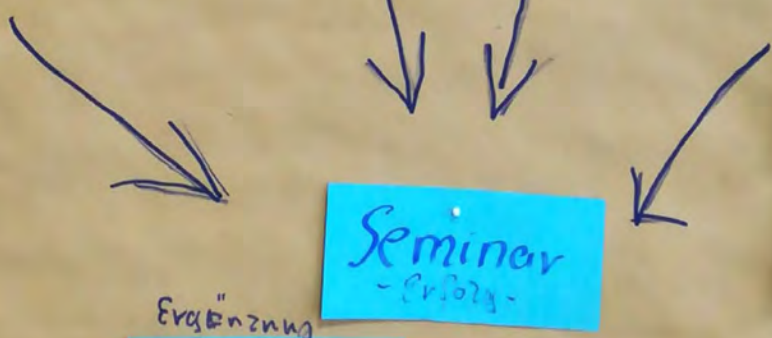 Seminar
- Erfolg -
Ergänzung